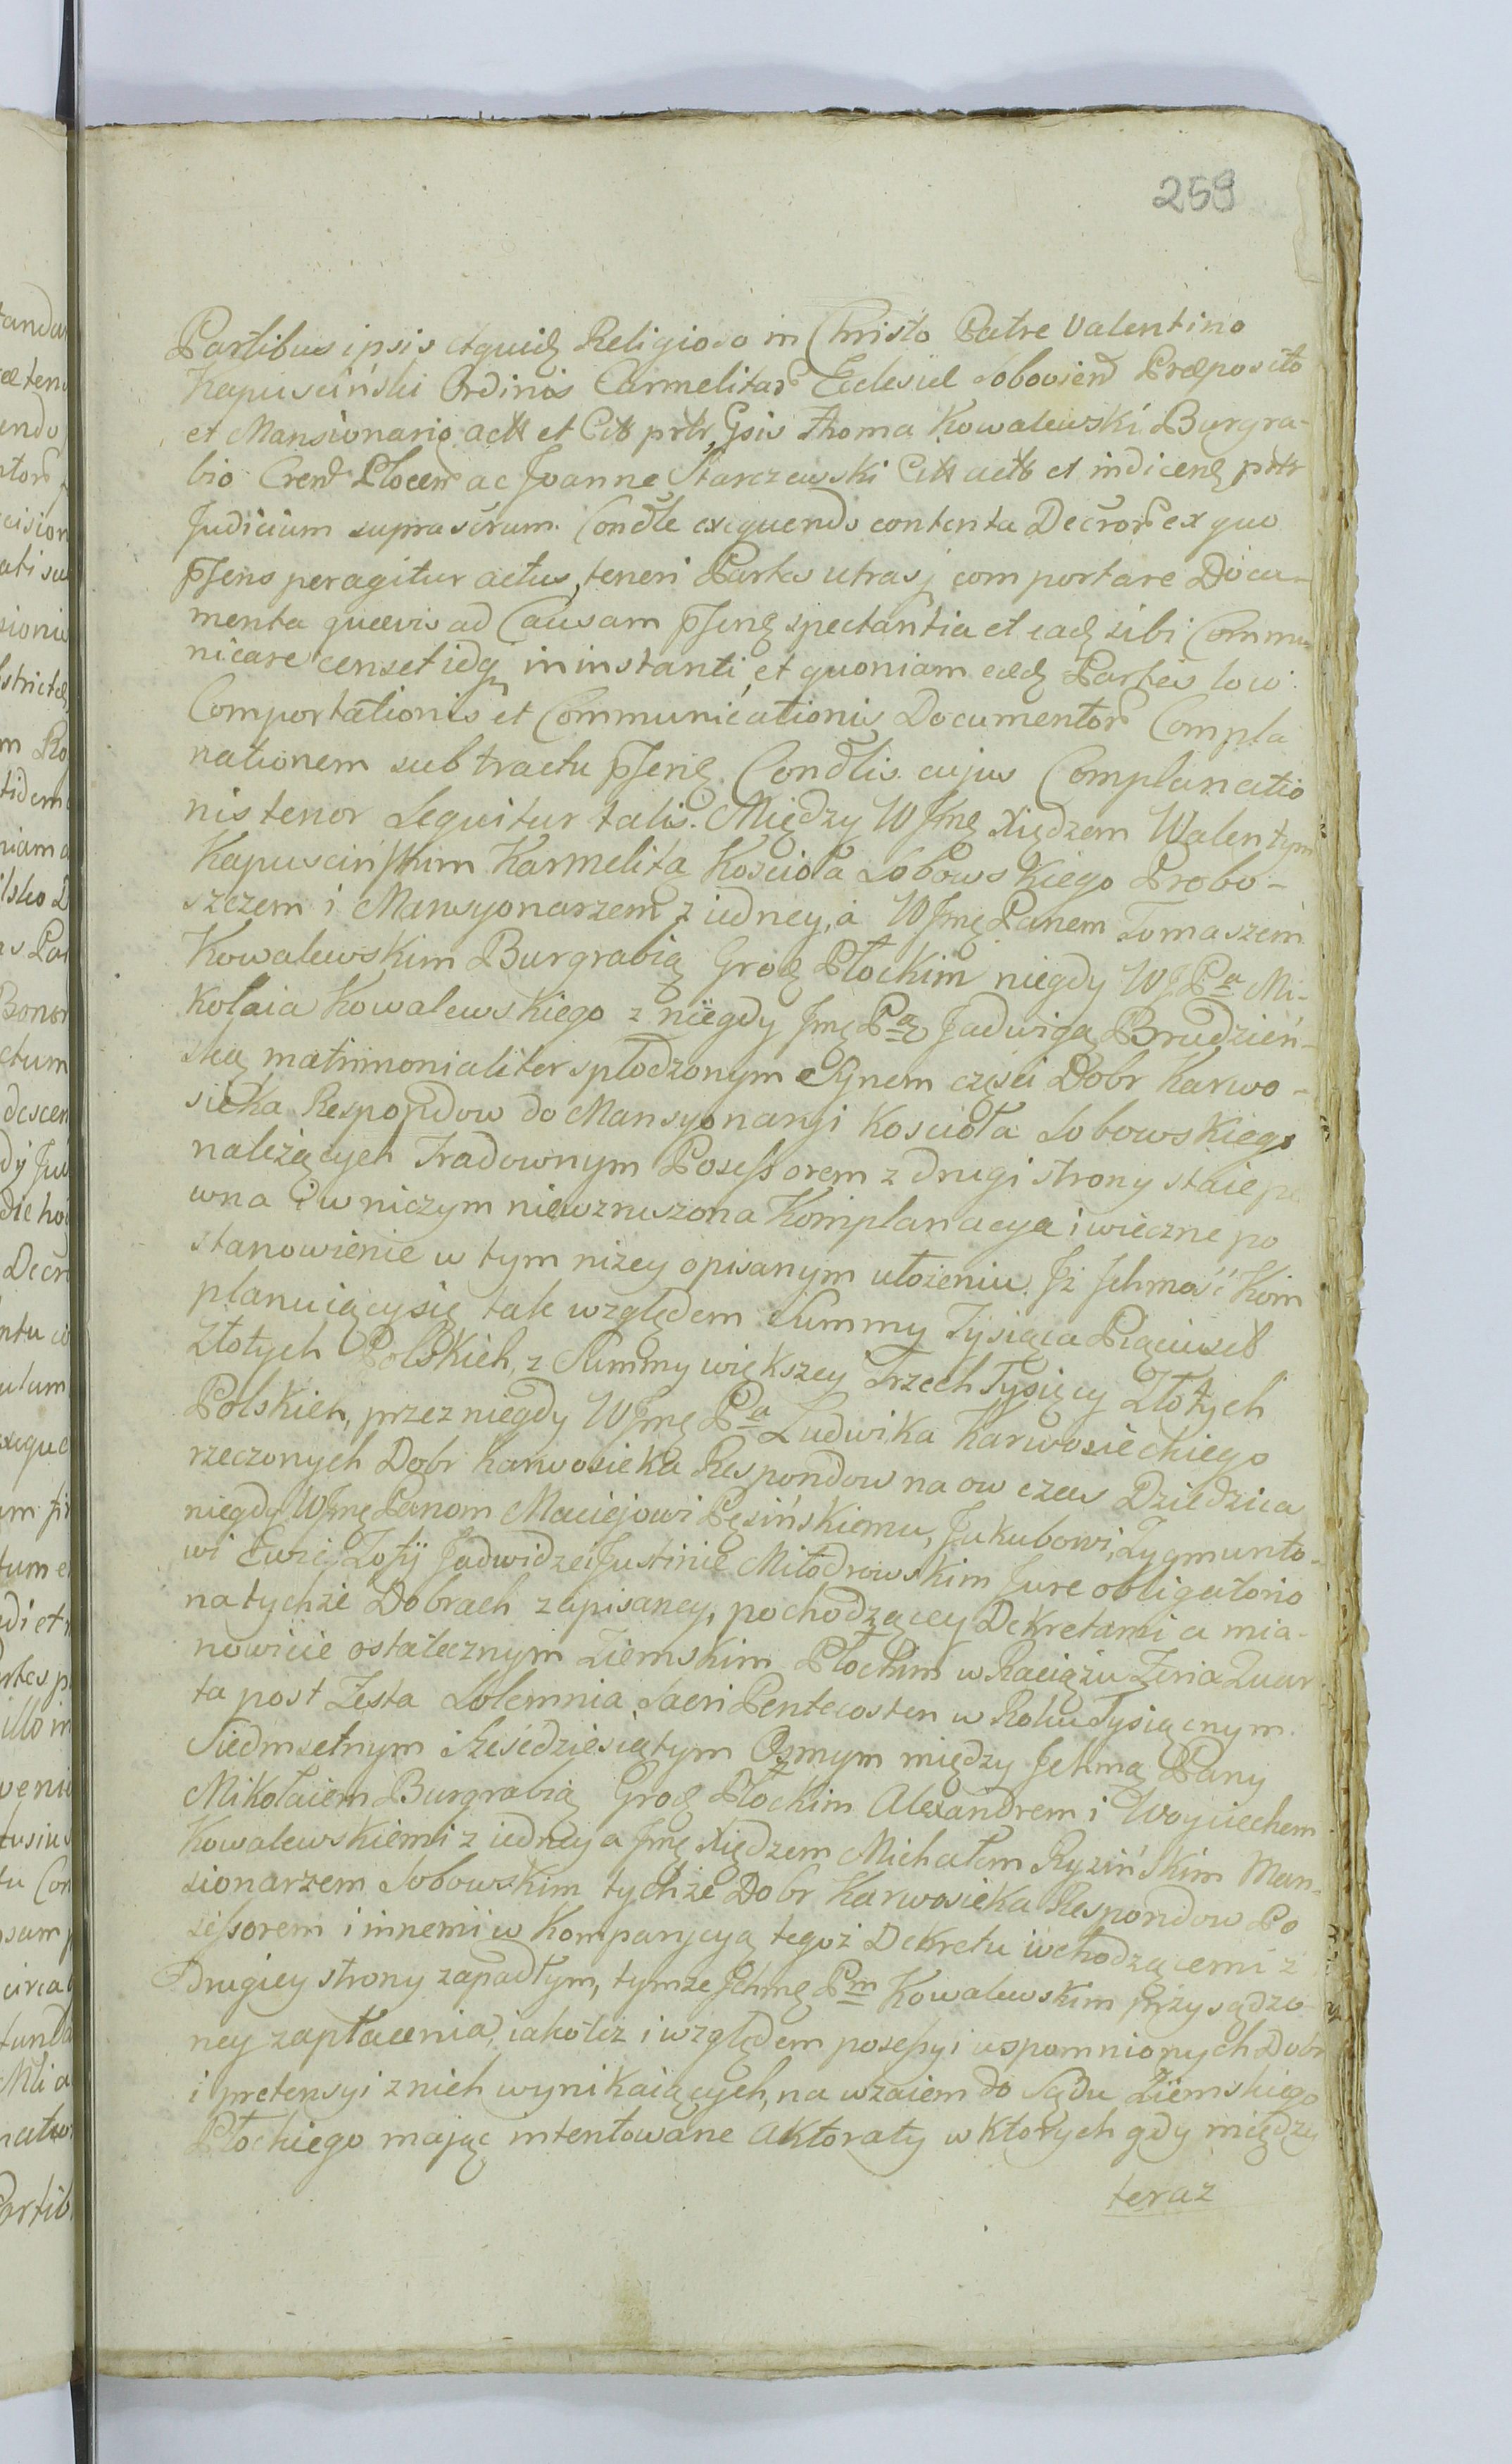 259
Partibus ipsis etquidę Religioso in Christo Patre Valentino
Kapuscinski Ordinis Carmelitar Ecclesiæ Sobovien Præposito
et Mansionario actt et Citt prtr, Gsis Thoma Kowalewski Burgra-
bio Cren Plocen ac Joanne Starczewski Citt actt et indicenę prtr
Judicium suprascrum. Condle exequendo contenta Decror ex quo
pſens peragitur actus, teneri Partes utrasq comportare Docu-
menta quævis ad Causam pſenę spectantia et eadę sibi Commu-
nicare censet idq in instanti, et quoniam eædę Partes loco
Comportationis et Communicationis Documentor Compla
nationem sub tractu pſenę Condlis cujus Complanatio
nis tenor Sequitur talis. Między WJmę Xiędzem Walentym
Kapuscińskim Karmelitą Kościoła Sobowskiego Probo-
szczem i Mansyonarzem z iedney, a WJmę Panem Tomaszem
Kowalewskim Burgrabią Grodę Płockim niegdy WJPa Mi-
kołaia Kowalewskiego z niegdy Jmę Pą Jadwigą Brudzień-
ską matrimonialiter spłodzonym Synem części Dobr Karwo-
sieka Respondow do Mansyonaryi Kościoła Sobowskiego
należących Tradownym Posessorem z drugi strony staie pe
wna i w niczym niewzruszona Komplanacya i wieczne po
stanowienie w tym niżey opisanym ułożeniu. Iż Jchmość Kom
planuiący się tak względem Summy Tysiąca Pięciuset
Złotych Polskich, z Summy większey Trzech Tysięcy Złotych
Polskich, przez niegdy WJmę Pa Ludwika Karwosieckiego
rzeczonych Dobr Karwosieka Respondow na ow czas Dziedzica
niegdy WJmę Panom Maciejowi Pęsińskiemu, Jakubowi, Zygmunto-
wi Ewie, Zofij Jadwidze i Justinie Miłodrowskim Jure obligatorio
na tychże Dobrach zapisaney, pochodzącey Dekretami a mia-
nowicie ostatecznym Ziemskim Płockim w Raciążu Feria Quar
ta post Festa Solemnia Sacri Pentecosten w Roku Tysiącnym
Siedmsetnym Sześćdziesiątym Osmym między Jchmę Pany
Mikołaiem Burgrabią Grodę Płockim Alexandrem i Woyciechem
Kowalewskiemi z iedney a Jmę Xiędzem Michałem Ryzińskim Man-
sionarzem Sobowskim tychże Dobr Karwosieka Respondow Po
sessorem i innemi w Komparycyą tegoż Dekretu wchodzącemi z
drugiey strony zapadłym, tymże Jchmę Pm Kowalewskim przysądzo-
ney zapłacenia, iakoteż i względem posessyi wspomnionych Dobr
i pretensyi z nich wynikaiących, na wzaiem do Sądu Ziemskiego
Płockiego maiąc intentowane Aktoraty w ktorych gdy między
teraz